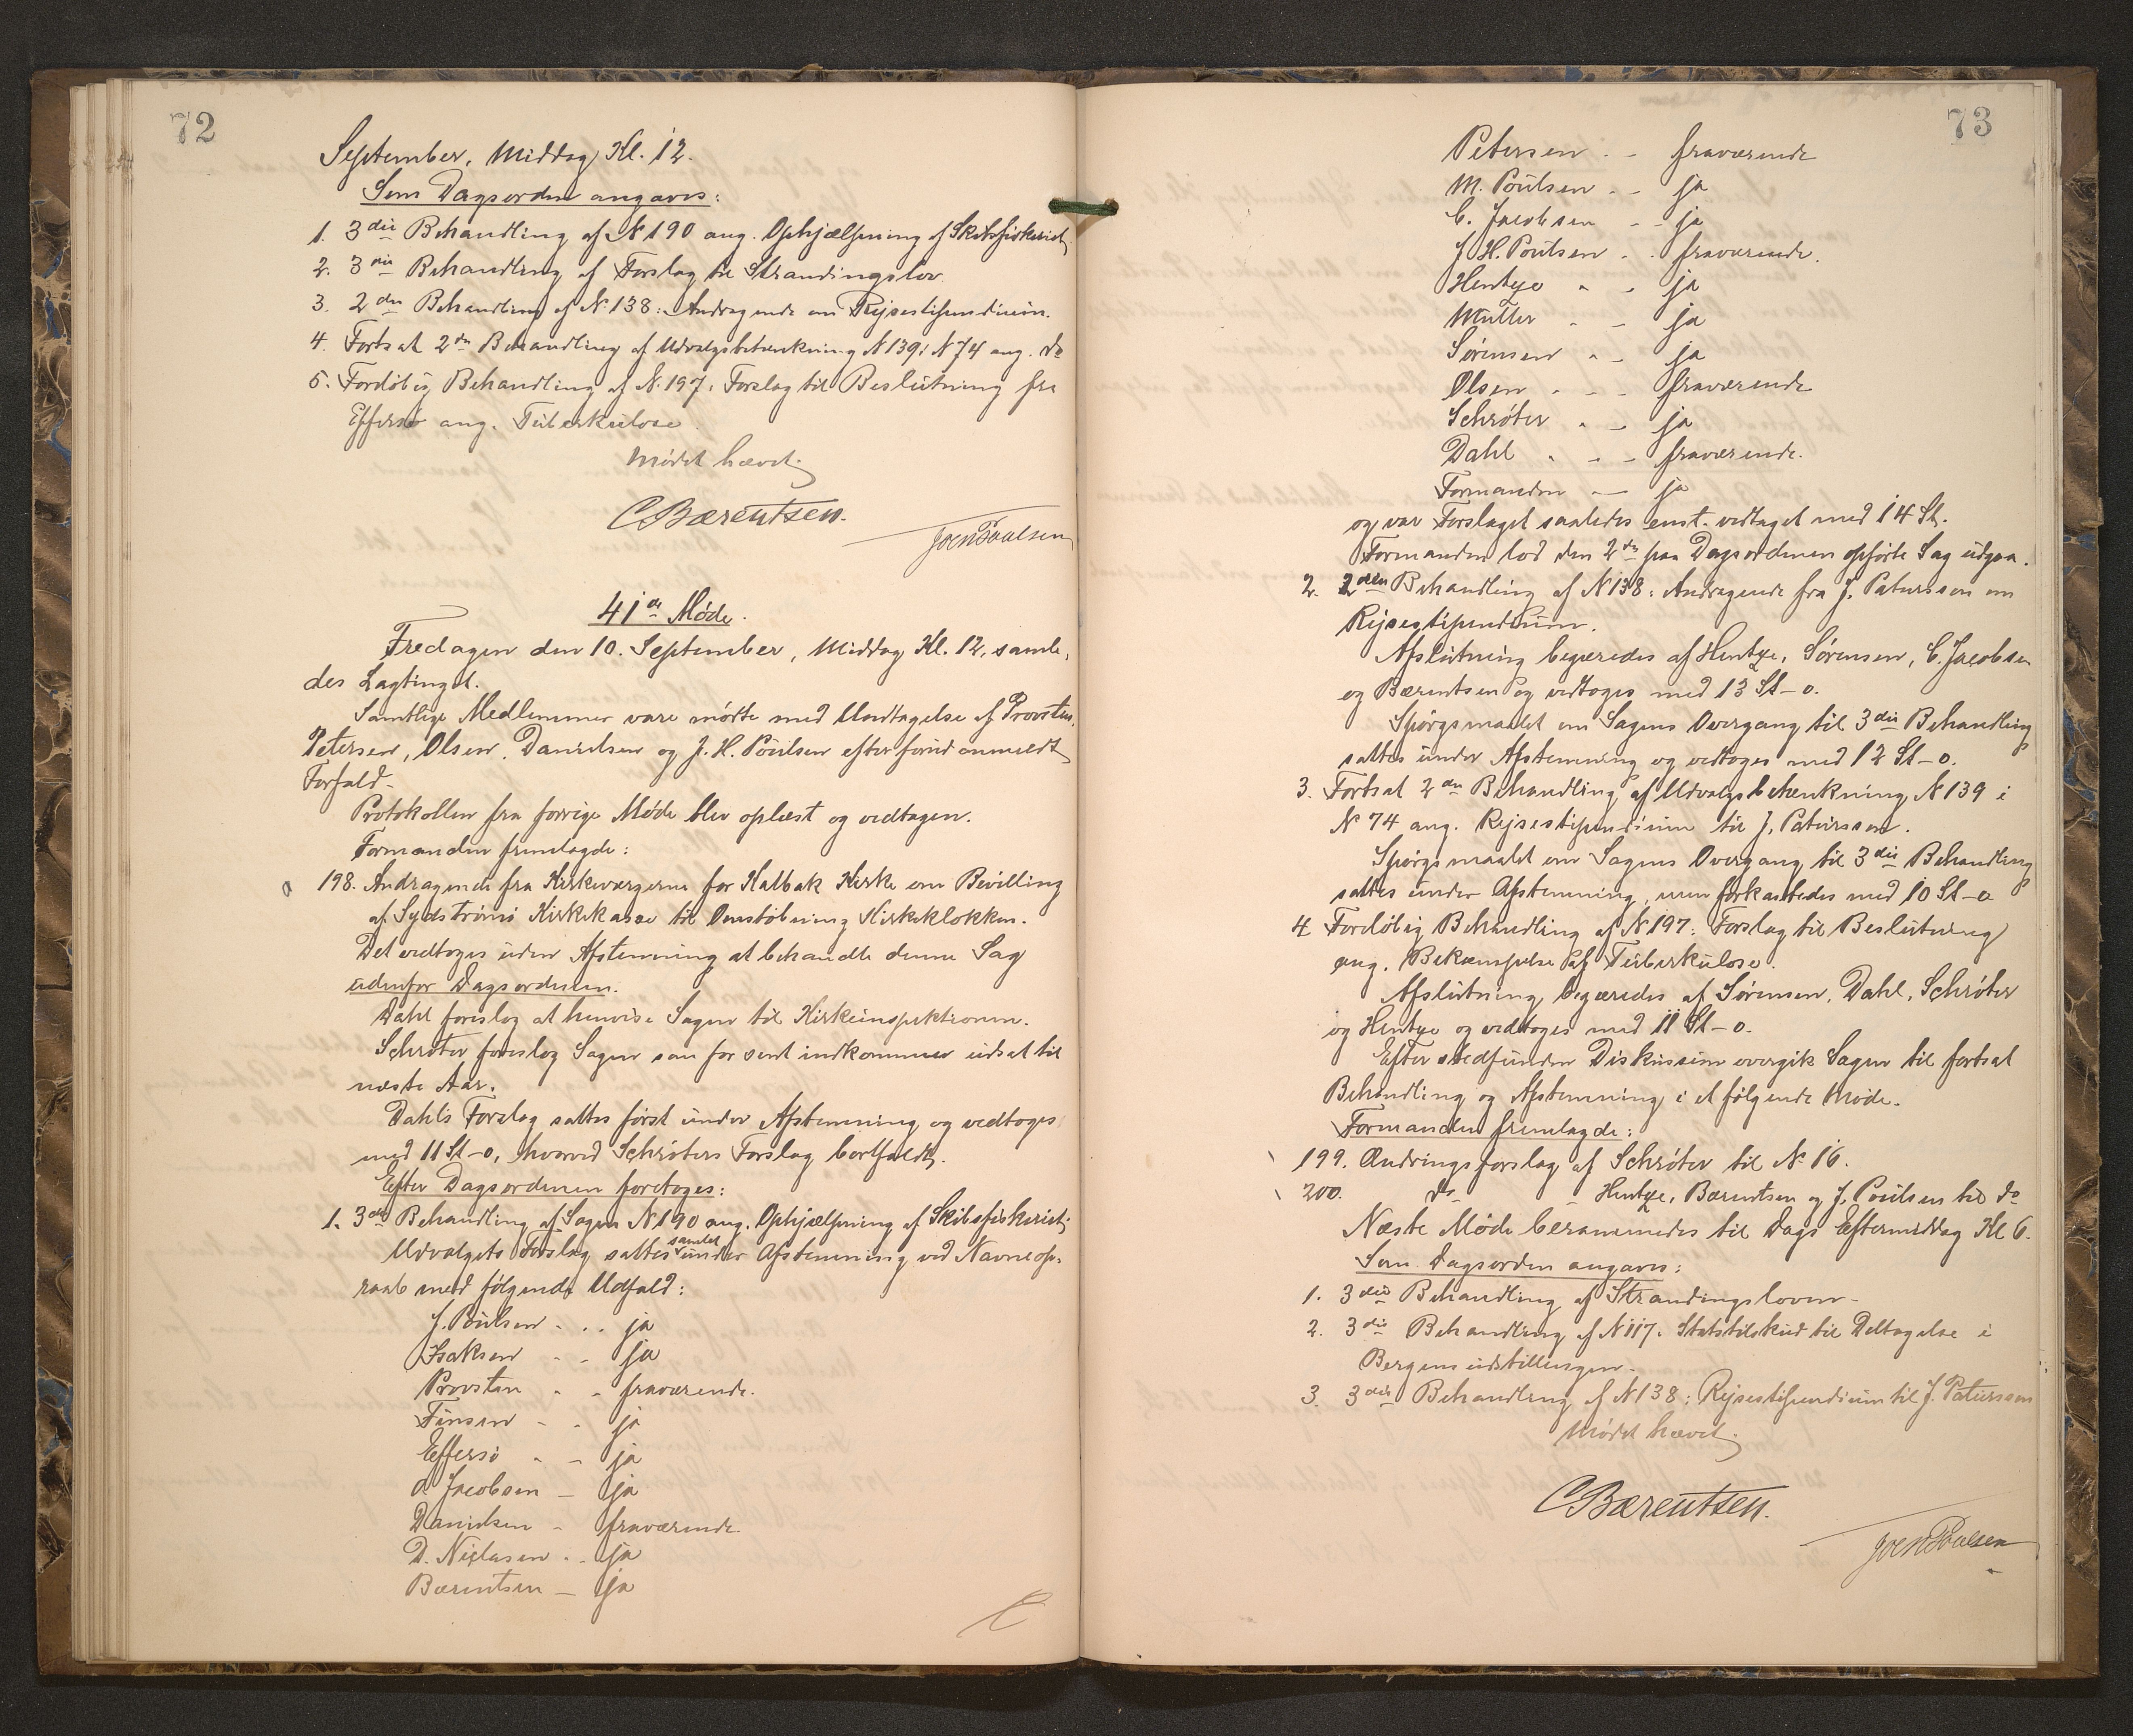 72
September, Middag Kl. 12.
Som Dagsorden angaves:
1. 3die Behandling af № 190 ang. Ophjælpning af Skibsfiskeriet,
2. 3die Behandling af Forslag til Strandingslov
3. 2den Behandling af № 138: Andragende om Rejsestipendium.
4. Fortsat 2den Behandling af Udvalgsbetænkning № 139 i № 74 ang. do
5. Foreløbig Behandling af № 197. Forslag til Beslutning fra
Effersø ang. Tuberkulose
Mødet hævet.
CBærentsen.
Joen Poulsen
41de Møde.
Fredagen den 10. September, Middag Kl. 12, samle-
des Lagtinget.
Samtlige Medlemmer vare mødte med Undtagelse af Provsten,
Petersen, Olsen, Danielsen og J. H. Poulsen efter forud anmeldt
Forfald.
Protokollen fra forrige Møde blev oplæst og vedtagen.
Formanden fremlagde:
198. Andragende fra Kirkeværgerne for Kalbak Kirke om Bevilling
af Sydstrømø Kirkekasse til Omstøbning Kirkeklokken.
Det vedtoges uden Afstemning at behandle denne Sag
udenfor Dagsordenen.
Dahl foreslog at henvise Sagen til Kirkeinspektionen.
Schrøter foreslog Sagen som for sent indkommen udsat til
næste Aar.
Dahls Forslag sattes først under Afstemning og vedtoges
med 11 St - 0, hvorved Schrøters Forslag bortfaldt.
Efter Dagsordenen foretoges:
1. 3die Behandling af Sagen № 190 ang. Ophjælpning af Skibsfiskeriet;
Udvalgets Forslag sattes samlet under Afstemning ved Navneop-
raab med følgende Udfald:
J. Poulsen - .. ja
Isaksen - - ja
Provsten - - fraværende.
Finsen - - ja
Effersø - - ja
A. Jacobsen - ja
Danielsen - fraværende.
D. Niclasen .. ja
Bærentsen - ja
73
Petersen . - fraværende
M. Poulsen . - ja
C. Jacobsen - - ja
J. H. Poulsen . . fraværende.
Hentze - - ja
Müller . - ja
Sørensen - - ja
Olsen . . - fraværende
Schrøter . - ja
Dahl . - - fraværende.
Formanden - ja
og var Forslaget saaledes enst. vedtaget med 14 St.
Formanden lod den 2den paa Dagsordenen opførte Sag udgaa.
2. 2den Behandling af № 138: Andragende fra J. Patursson om
Rejsestipendium.
Afslutning begæredes af Hentze, Sørensen, C. Jacobsen
og Bærentsen og vedtoges med 13 St - 0.
Spørgsmaalet om Sagens Overgang til 3die Behandling
sattes under Afstemning og vedtoges med 12 St - 0.
3. Fortsat 2den Behandling af Udvalgsbetænkning № 139 i
№ 74 ang. Rejsestipendium til J. Patursson.
Spørgsmaalet om Sagens Overgang til 3die Behandling
sattes under Afstemning, men forkastedes med 10 St - 0
4. Foreløbig Behandling af № 197: Forslag til Beslutning
ang. Bekæmpelse af Tuberkulose.
Afslutning begæredes af Sørensen, Dahl, Schrøter
og Hentze og vedtoges med 11 St - 0.
Efter stedfunden Diskussion overgik Sagen til fortsat
Behandling og Afstemning i et følgende Møde.
Formanden fremlagde:
199. Ændringsforslag af Schrøter til № 16.
200. do - Hentze, Bærentsen og J. Poulsen til do
Næste Møde berammedes til Dags Eftermiddag Kl 6.
Som Dagsorden angaves:
1. 3die Behandling af Strandingsloven.
2. 3die Behandling af № 117. Statstilskud til Deltagelse i
Bergensudstillingen.
3. 3die Behandling af № 138: Rejsestipendium til J. Patursson
Mødet hævet.
CBærentsen.
Joen Poulsen